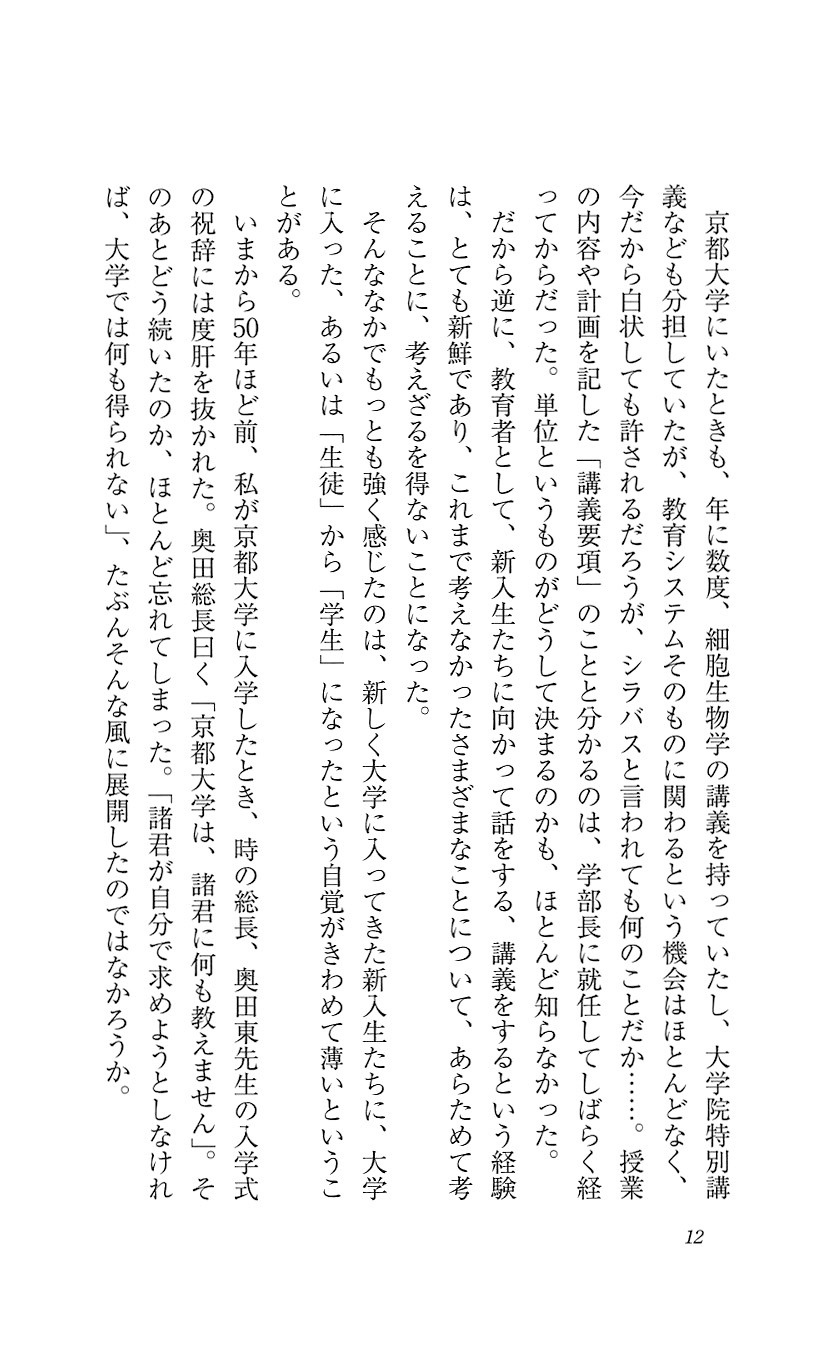 京都大学にいたときも、年に数度、細胞生物学の講義を持っていたし、大学院特別講
義なども分担していたが、教育システムそのものに関わるという機会はほとんどなく、
今だから白状しても許されるだろうが、シラバスと言われても何のことだか……。授業
の内容や計画を記した「講義要項」のことと分かるのは、学部長に就任してしばらく経
ってからだった。単位というものがどうして決まるのかも、ほとんど知らなかった。
　だから逆に、教育者として、新入生たちに向かって話をする、講義をするという経験
は、とても新鮮であり、これまで考えなかったさまざまなことについて、あらためて考
えることに、考えざるを得ないことになった。
　そんななかでもっとも強く感じたのは、新しく大学に入ってきた新入生たちに、大学
に入った、あるいは「生徒」から「学生」になったという自覚がきわめて薄いというこ
とがある。
　いまから50年ほど前、私が京都大学に入学したとき、時の総長、奥田東先生の入学式
の祝辞には度肝を抜かれた。奥田総長曰く「京都大学は、諸君に何も教えません」。そ
のあとどう続いたのか、ほとんど忘れてしまった。「諸君が自分で求めようとしなけれ
ば、大学では何も得られない」、たぶんそんな風に展開したのではなかろうか。
12